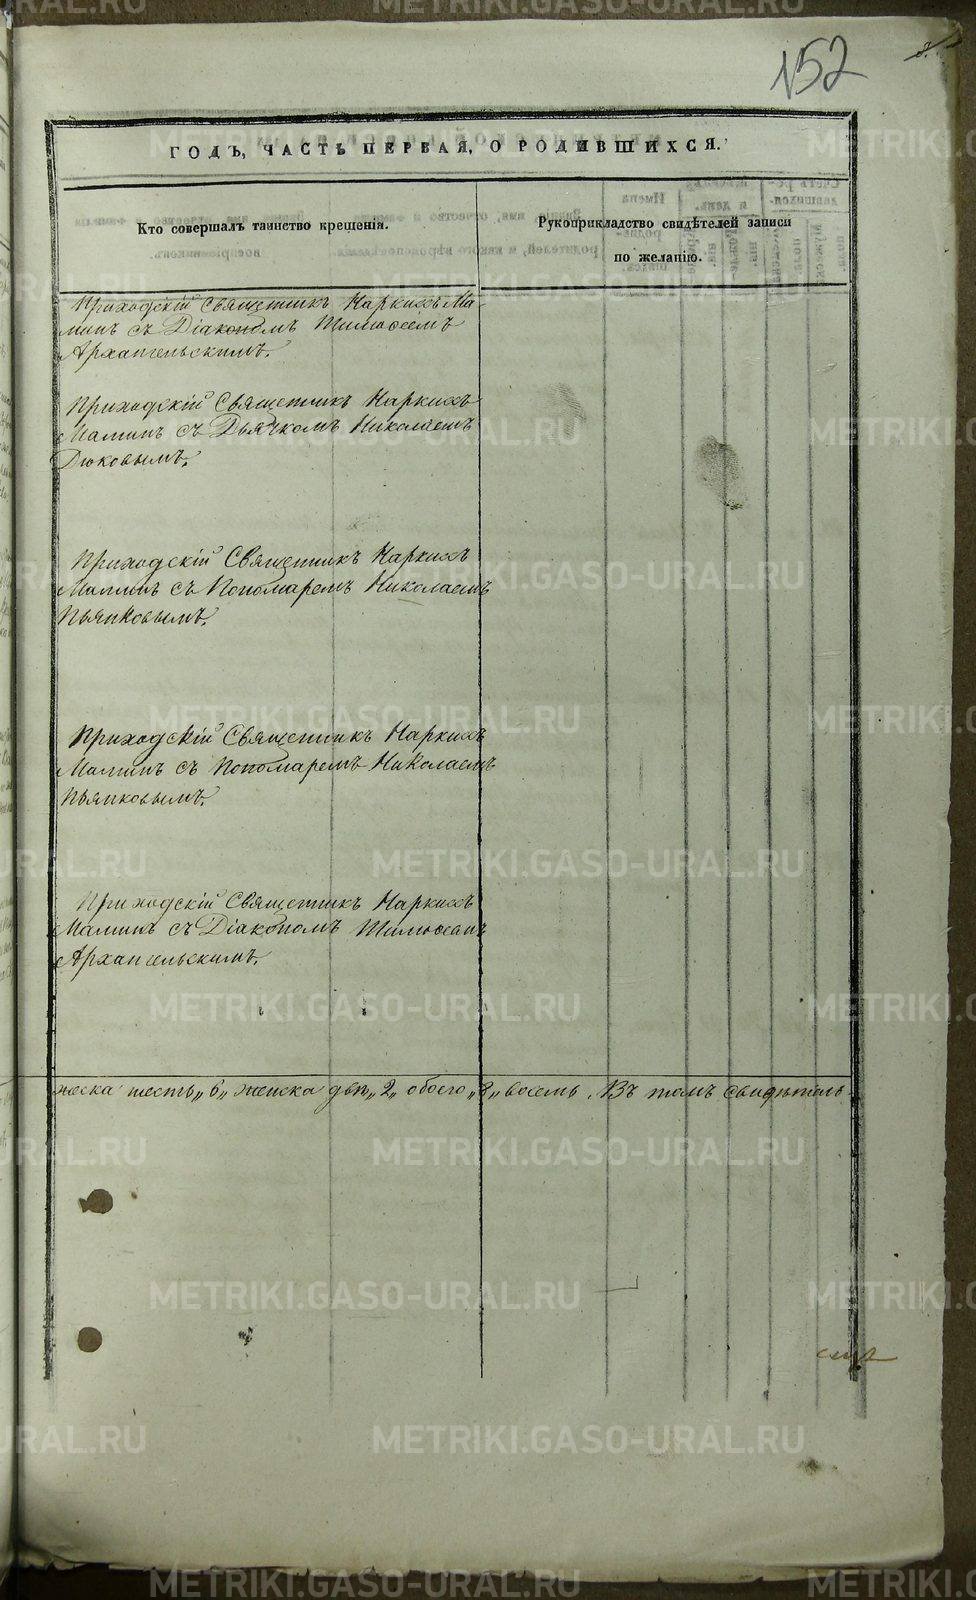 152
8.
ГОДЪ, ЧАСТЬ ПЕРВАЯ, О РОДИВШИХСЯ.
Кто совершалъ таинство крещенія.
Рукоприкладство свидѣтелей записи
по желанію.
Приходскій Священникъ Наркиссъ Ма-
минъ съ Діакономъ Тимофеемъ
Архангельскимъ.
Приходскій Священникъ Наркиссъ
Маминъ съ Дьячкомъ Николаемъ
Дюковымъ.
Приходскій Священникъ Наркиссъ
Маминъ съ Пономаремъ Николаемъ
Пьянковымъ.
Приходскій Священникъ Наркиссъ
Маминъ съ Пономаремъ Николаемъ
Пьянковымъ.
Приходскій Священникъ Наркиссъ
Маминъ съ Діакономъ Тимофеемъ
Архангельскимъ.
жеска шесть „6„ женска двѣ „2„ обоего „8„ восемь. Въ томъ свидѣтель-
METRIKI.GASO-URAL.RU